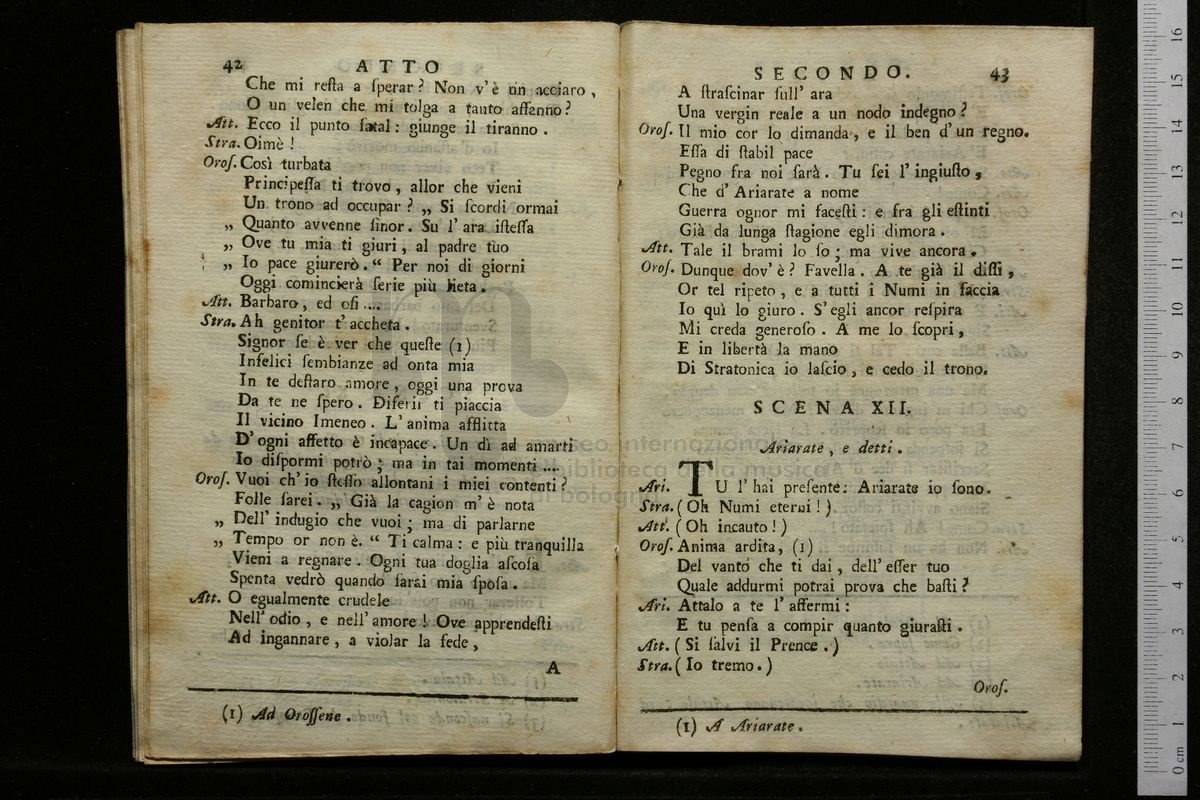 42 ATTO
Che mi reſta a ſperar? Non v'è un acciaro,
O un velen che mi tolga a tanto affanno?
Att. Ecco il punto fatal: giunge il tiranno.
Stra. Oimè!
Oroſ. Così turbata
Principeſſa ti trovo, allor che vieni
Un trono ad occupar? „ Si ſcordi ormai
„ Quanto avvenne ſinor. Su l'ara iſteſſa
„ Ove tu mia ti giuri, al padre tuo
„ Io pace giurerò. “ Per noi di giorni
Oggi comincierà ſerie più lieta.
Att. Barbaro, ed oſi ....
Stra. Ah genitor t'accheta.
Signor ſe è ver che queſte (1)
Infelici ſembianze ad onta mia
In te deſtaro amore, oggi una prova
Da te ne ſpero. Diferir ti piaccia
Il vicino Imeneo. L'anima afflitta
D'ogni affetto è incapace. Un dì ad amarti
Io diſpormi potrò; ma in tai momenti ....
Oroſ. Vuoi ch'io ſteſſo allontani i miei contenti?
Folle ſarei. „ Già la cagion m'è nota
„ Dell'indugio che vuoi; ma di parlarne
„ Tempo or non è. “ Ti calma: e più tranquilla
Vieni a regnare. Ogni tua doglia aſcoſa
Spenta vedrò quando ſarai mia ſpoſa.
Att. O egualmente crudele
Nell'odio, e nell'amore! Ove apprendeſti
Ad ingannare, a violar la fede,
A
(1) Ad Oroſſene.
SECONDO. 43
A ſtraſcinar ſull'ara
Una vergin reale a un nodo indegno?
Oroſ. Il mio cor lo dimanda, e il ben d'un regno.
Eſſa di ſtabil pace
Pegno fra noi ſarà. Tu ſei l'ingiuſto,
Che d'Ariarate a nome
Guerra ognor mi faceſti: e fra gli eſtinti
Già da lunga ſtagione egli dimora.
Att. Tale il brami lo ſo; ma vive ancora.
Oroſ. Dunque dov'è? Favella. A te già il diſſi,
Or tel ripeto, e a tutti i Numi in faccia
Io quì lo giuro. S'egli ancor reſpira
Mi creda generoſo. A me lo ſcopri,
E in libertà la mano
Di Stratonica io laſcio, e cedo il trono.
SCENA XII.
Ariarate, e detti.
Ari. TU l'hai preſente: Ariarate io ſono.
Stra. (Oh Numi eterni!)
Att. (Oh incauto!)
Oroſ. Anima ardita, (1)
Del vanto che ti dai, dell'eſſer tuo
Quale addurmi potrai prova che baſti?
Ari. Attalo a te l'affermi:
E tu penſa a compir quanto giuraſti.
Att. (Si ſalvi il Prence.)
Stra. (Io tremo.)
Oroſ.
(1) A Ariarate.
museo internazionale
e biblioteca della musica
di bologna
0 cm 1 2 3 4 5 6 7 8 9 10 11 12 13 14 15 16